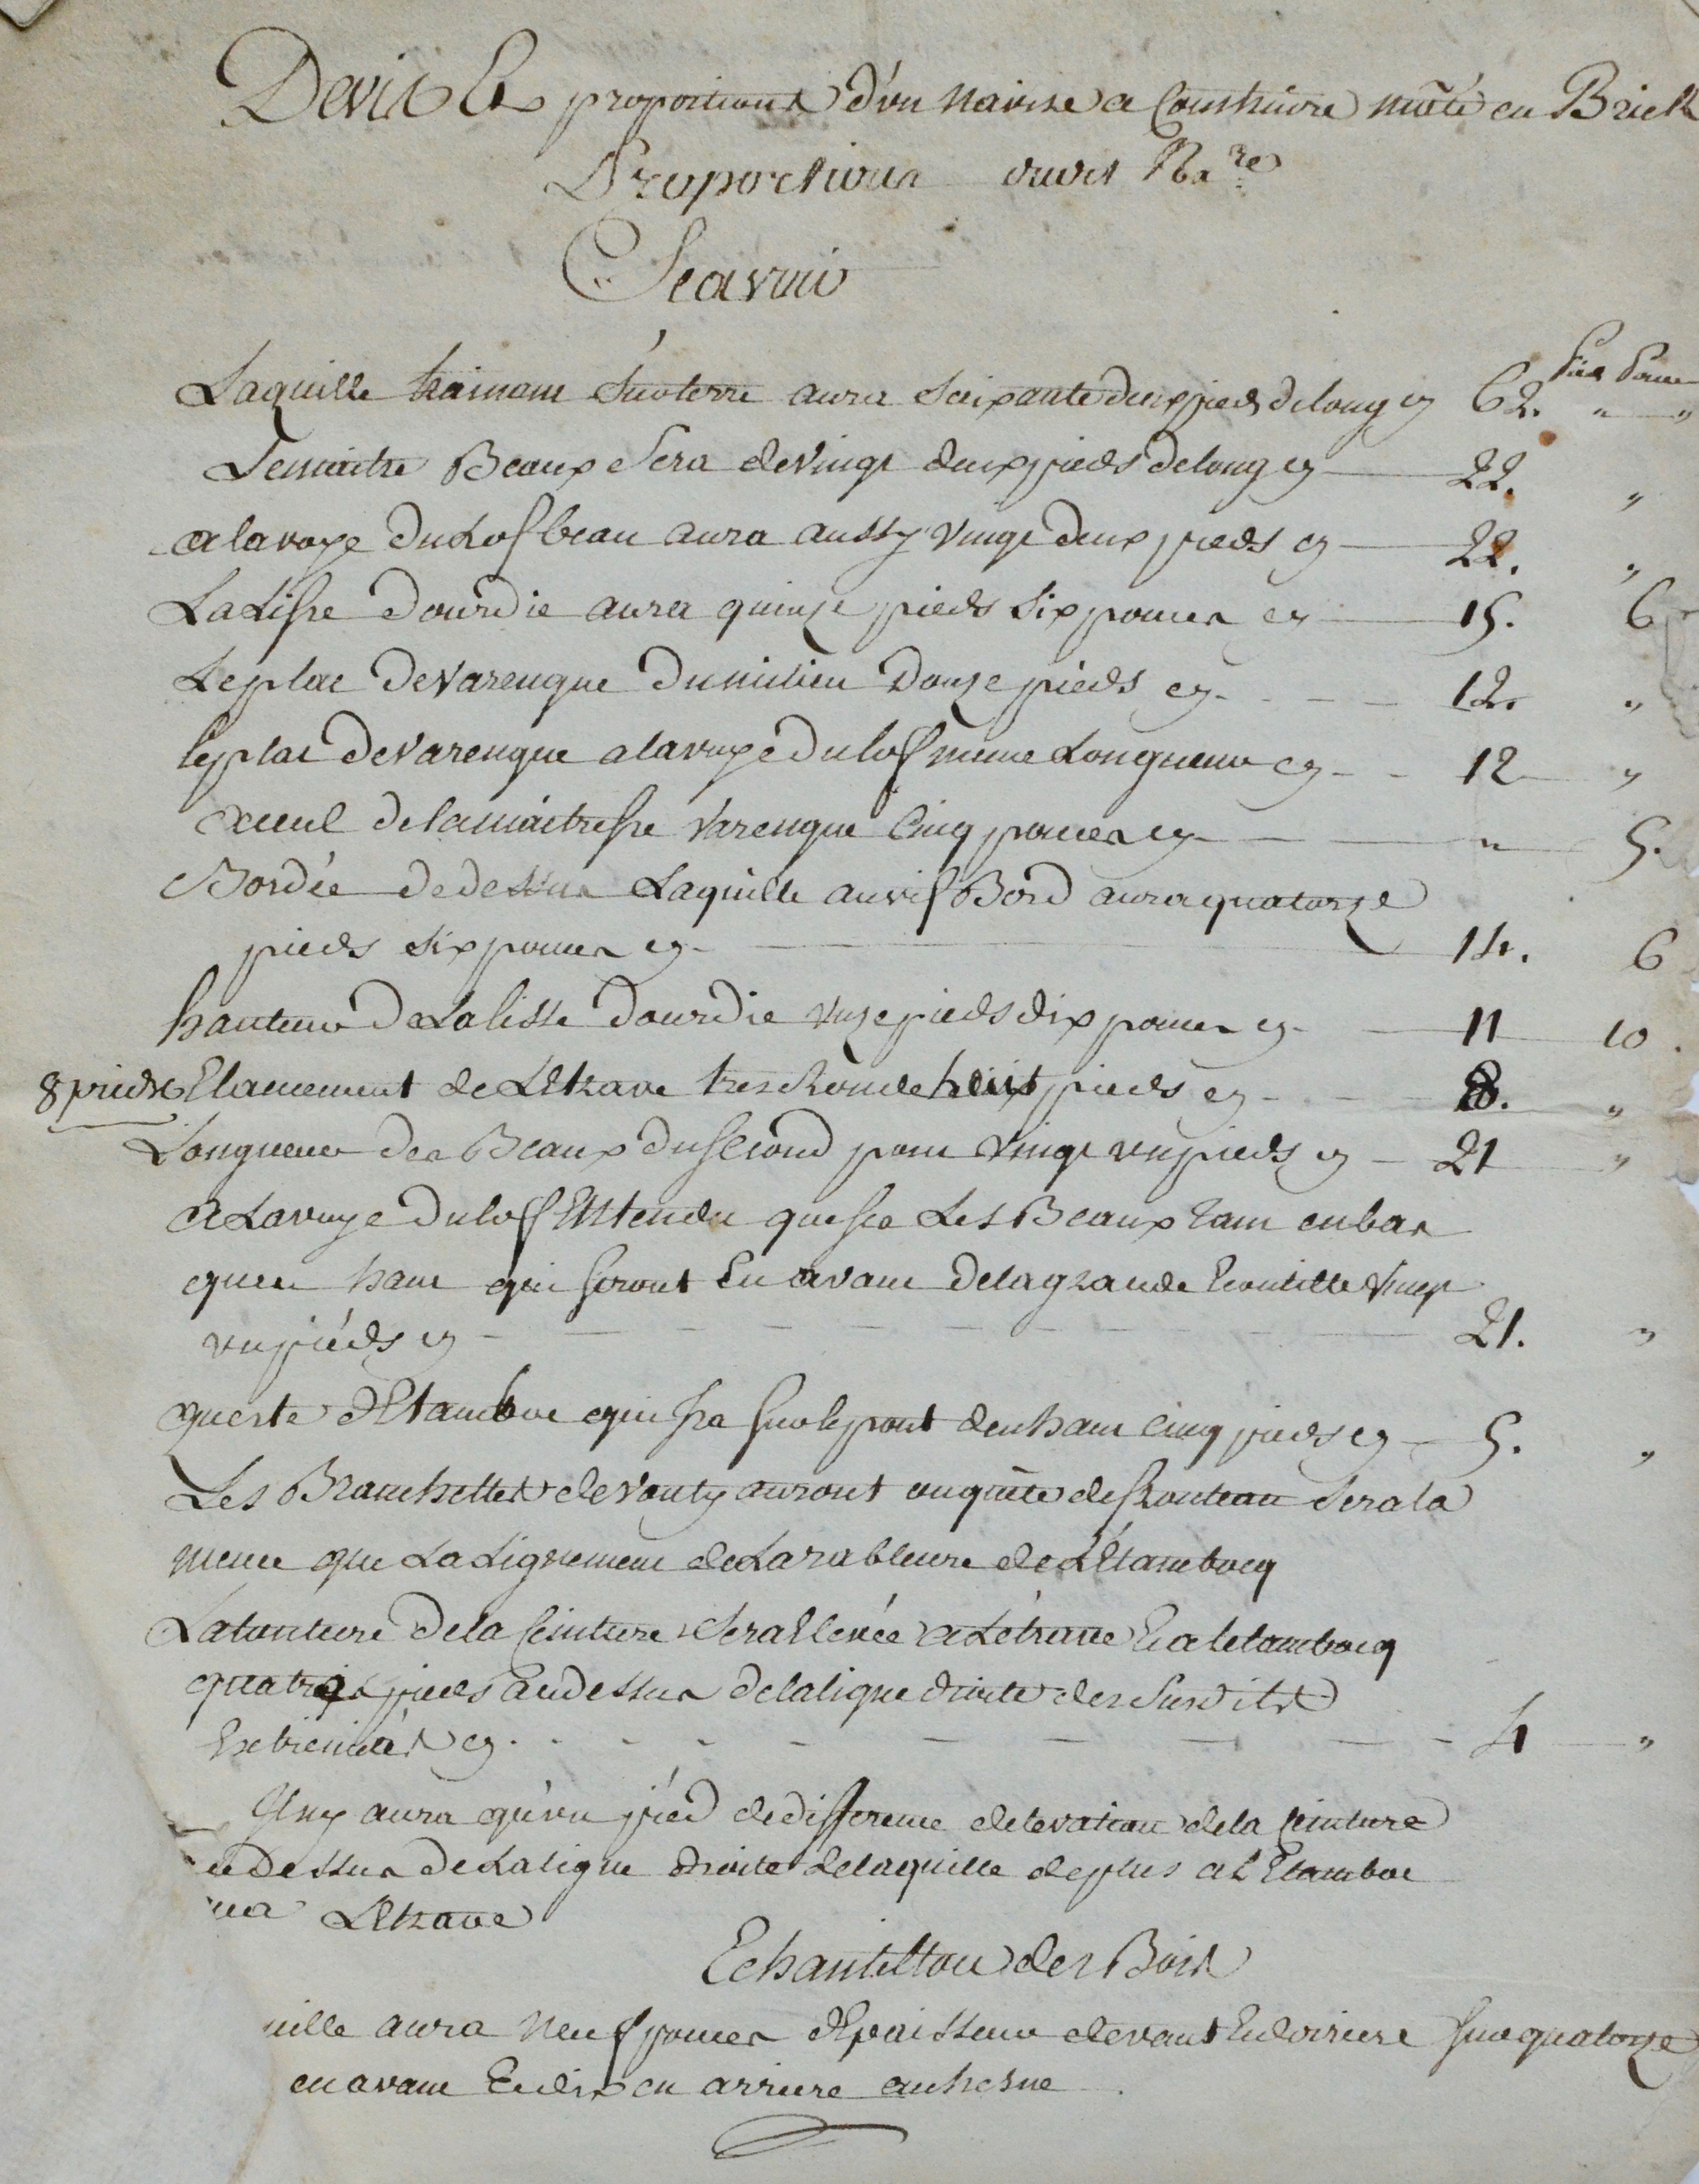 Devis Et proportions d'un navire a Construire mâté en Brick
Proportions
Scavoir
Pieds Pouces
Laquille trainant Sur terre aura Soixante deux pieds de long cy 62. " "
Le maitre Beaux Sera de Vingt deux pieds de long cy 22. "
a la voye du Lof beau aura aussy vingt deux pieds cy 22. "
La Lisse dourdie aura quinze pieds Six pouces cy 15. 6
Le plat de Varengue du milieu Douze pieds cy 12. "
le plat de Varengue a la voye du lof meme Longueur cy 12 "
acuul de la maitresse Varengue Cinq pouces cy " 5.
Bordée de dessus Laquille au vif Bord aura quatorze
pieds Six pouces cy 14. 6
hauteur De La lisse dourdie onze pieds dix pouces cy 11 10.
8 pieds Elancement de LEtrave tres Ronde huit pieds cy 8. "
Longueur des Beaux du Second pont Vingt un pieds cy 21 "
A La voye du lof Entendu que se Les Beaux tant en bas
quen haut qui Seront En avant de la grande Ecoutille Vingt
un pieds cy 21. "
queste d'Etambot qui sra sur le pont den haut Cinq pieds cy 5. "
Les Branchettes de Vouty auront ou quête de Routeau Sera la
meme que La Lignement de La rableure de L'Etambocq
La tonture de la Ceinture Sera Elevée a Létrave Et a letambocq
quatre pieds au dessus de la ligne droite des Susdites
Extremités cy 4 "
Il ny aura qu'un pied de difference delevation de la Ceinture
au Dessus de La ligne droite de laquille de plus a L'Etambot
qua LEtrave
Echantillon des Bois
uille aura Neuf pouces dEpaisseur devant En dariere Sur quatorze
en avant Et dix en arriere en hesne